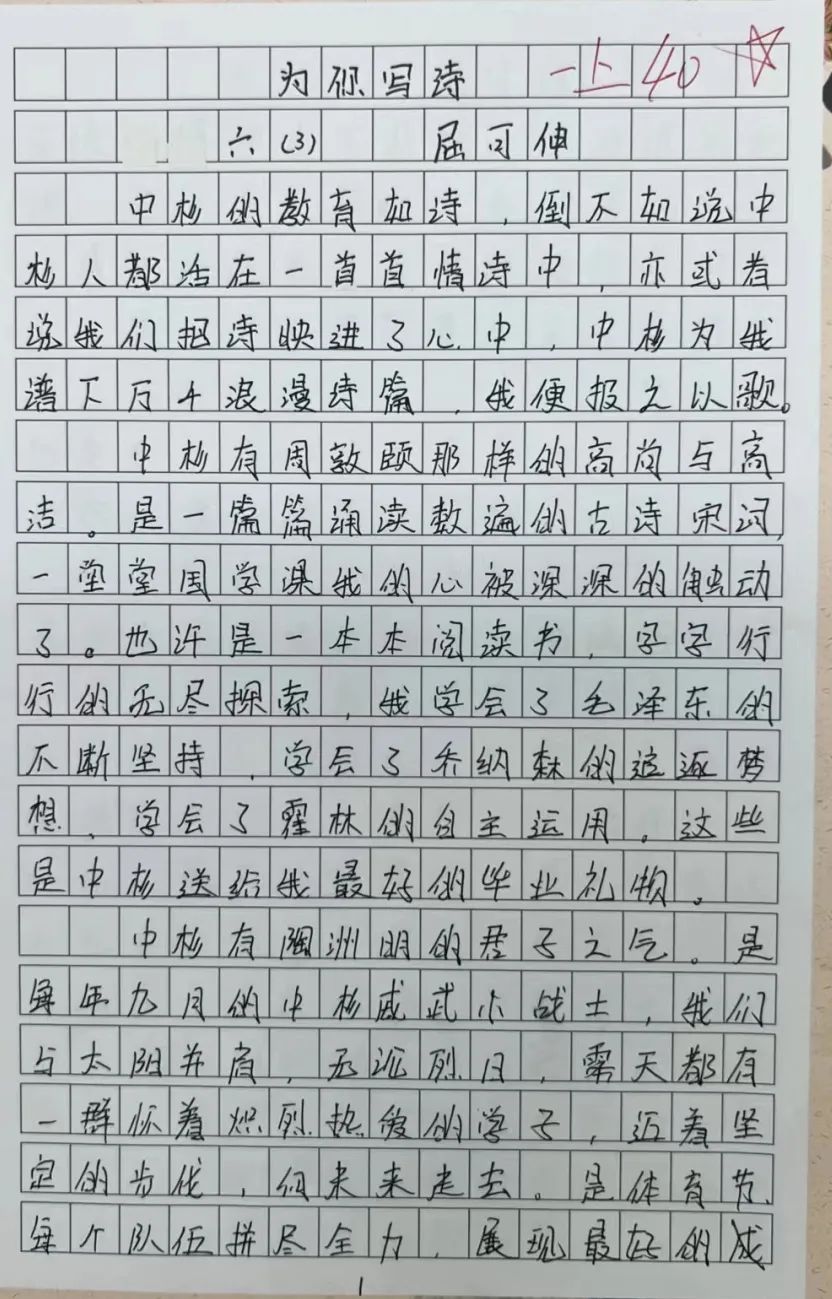 为你写诗 一上 40
六(3) 屈可伸
中核的教育如诗，倒不如说中
核人都活在一首首情诗中，亦或者
说我们把诗映进了心中，中核为我
谱下万千浪漫诗篇，我便报之以歌。
中核有周敦颐那样的高尚与高
洁。是一篇篇诵读数遍的古诗宋词，
一堂堂国学课我的心被深深的触动
了。也许是一本本阅读书，字字行
行的无尽探索，我学会了毛泽东的
不断坚持，学会了乔纳森的追逐梦
想，学会了霍林的自主运用。这些
是中核送给我最好的毕业礼物。
中核有陶渊明的君子之气。是
每年九月的中核威武小战士，我们
与太阳并肩，无论烈日，雾天都有
一群怀着炽烈热爱的学子，迈着坚
定的步伐，向未来走去。是体育节，
每个队伍拼尽全力，展现最好的成
1